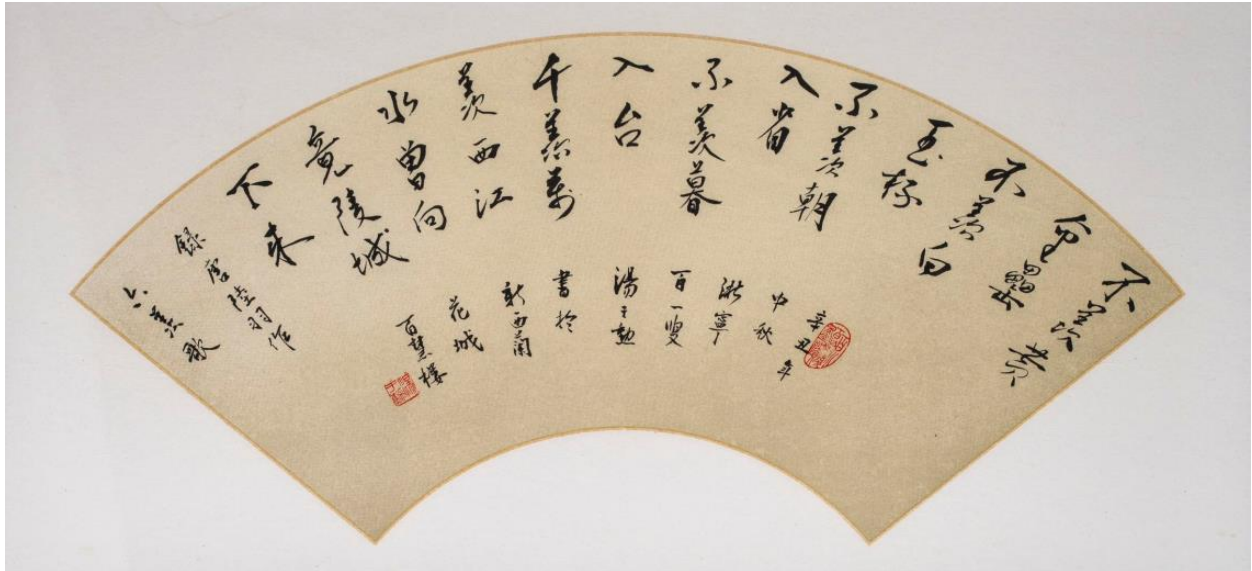 不羡黄
金罍
不羡白
玉杯
不羡朝
入省
不羡暮
入台
千羡萬
羡西江
水曾向
竟陵城
下来
錄唐陸羽作
六羡歌
辛丑年
中秋
寧
百一叟
湯
書於
新西蘭
花城
百慧樓